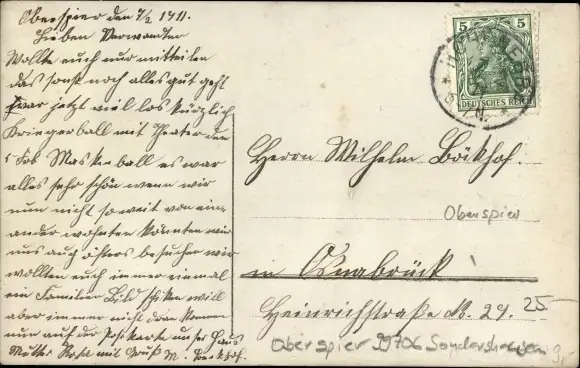 Oberspier den 7/2 1911.
Lieben Verwandten
Wollte euch nur mitteilen
das sonst noch alles gut geht
hier jetzt viel los kürzlich
Kriegerball mit Theater den
5 Feb Maskenball es war
alles sehr schön wenn wir
nun nicht so weit von ein-
ander wohnten könnten wir
uns auch öfters besuchen wir
wollten euch immer einmal
ein Familien Bild schicken weil
aber immer nicht dran kommen
nun auf der Postkarte unser Haus
Mutter Rosa mit Gruß M. Böckhof.
5
5
DEUTSCHES REICH
Herrn Wilhelm Böckhof.
Oberspier
in Osnabrück
Heinrichstraße N. 24.
25-
Oberspier 99706 Sondershausen
9,-